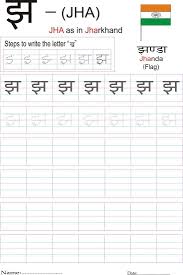 झ – (JHA)
JHA as in Jharkhand
Steps to write the letter "झ"
झण्डा
Jhanda
(Flag)
झ झ झ झ झ झ झ
झ झ झ झ झ झ झ
Name: Date: